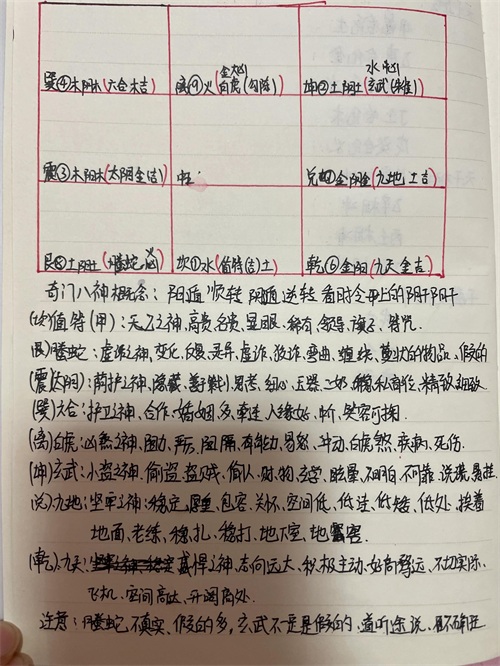 巽④木阴木(六合木吉)
离⑨火 白虎(勾陈) 金凶
坤②土阴土 玄武(朱雀) 水凶
震③木阳木(太阴金吉)
中
兑⑦金阴金(九地土吉)
艮⑧土阳土(螣蛇凶)
坎①水(值符吉土)
乾⑥金阳(九天金吉)
奇门八神概念:阳遁顺转 阴遁逆转 看时令中上的阴干阳干
(坎)值符(甲):天乙之神,高贵名贵,显眼、稀有、领导、孩子、
(艮)螣蛇:虚诈之神,变化、反复、灵异、虚诈、欺诈、弯曲、缠绕、蔓状的物品、假的
(震)太阴:荫护之神、隐藏、思考、细心、玉器、私、精致细致
(巽)六合:护卫之神、合作、婚姻、多、牵连、人缘好、中介、笑容可掬
(离)白虎:凶煞之神、困力、严厉、阻隔、有能力、易怒、冲动、白虎煞、疾病、死伤.
(坤)玄武:小盗之神、偷盗、盗贼、偷人、财、物、玄学、暗昧、不明白、不可靠、说谎、愚拙
(兑)九地:坚牢之神:稳定、厚重、包容、关怀、空间低、低洼、低矮、低处、挨着
地面、老练、稳扎、稳打、地下室、地窖.
(乾)九天:之神、志向远大、积极主动、好高骛远、不切实际、
飞机、空间高远、开阔高处
注意:螣蛇不真实、假的多,玄武不一定是假的、道听途说、看不确定